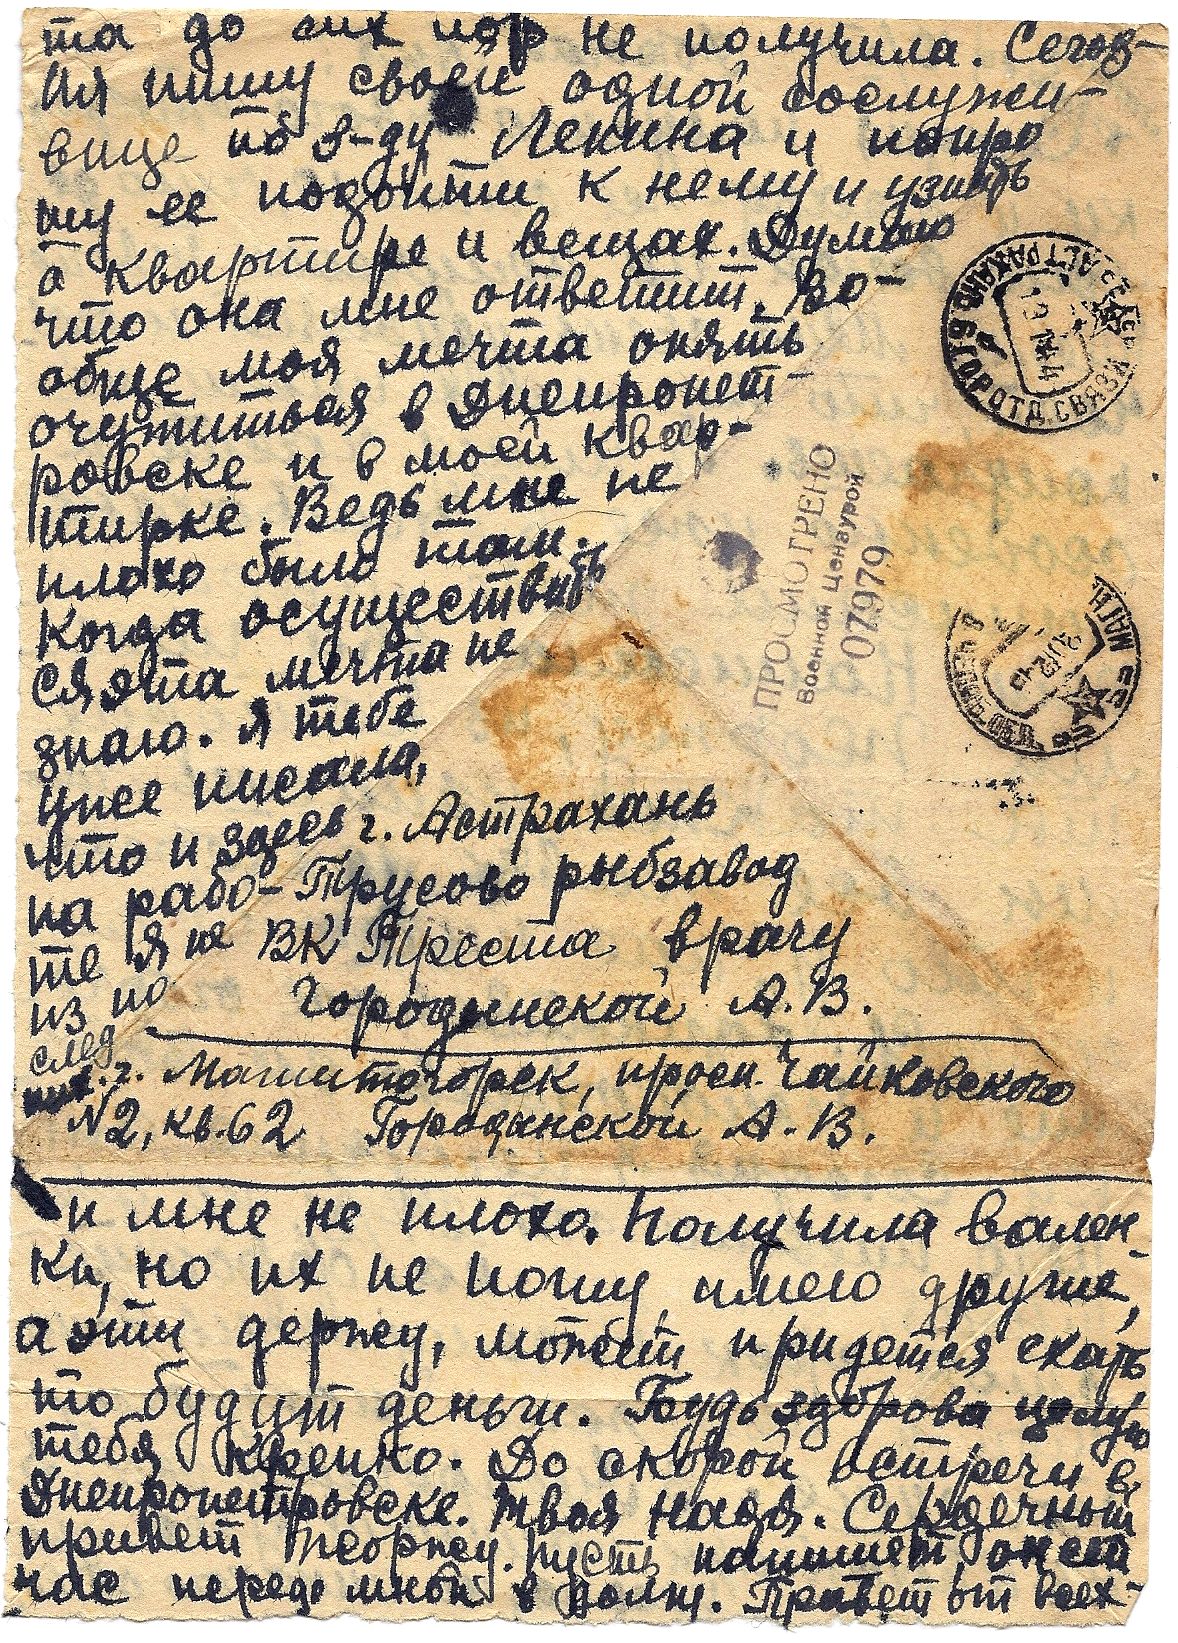 та до сих пор не получила. Сегод-
ня пишу своей одной сослужи-
вице по з-ду Ленина и попро
шу ее подойти к нему и узнать
о квартире и вещах. Думаю
что она мне ответит. Во-
обще моя мечта опять
очутиться в Днепропет-
ровске и в моей квар-
тирке. Ведь мне не
плохо было там.
Когда осуществить
ся эта мечта не
знаю. Я тебе
уже писала,
что и здесь
на рабо-
те я не
из по
след
них.
г. Астрахань
Трусово рыбзавод
ВК Треста врачу
Городинской А.В.
г. Магнитогорск, просп. Чайковского
N2, кв. 62 Городинской А.В.
АСТРАХАНЬ. 6 ГОРОТД. СВЯЗИ
ПРОСМОТРЕНО
Военной Цензурой
07979
и мне не плохо. Получила вален-
ки, но их не ношу, имею другие,
а эти держу, может придется ехать
то будут деньги. Будь здорова целую
тебя крепко. До скорой встречи в
Днепропетровске. Твоя Надя. Сердечный
привет Теоржу. Пусть напишет он сей
час передо мной в долгу. Привет от всех-